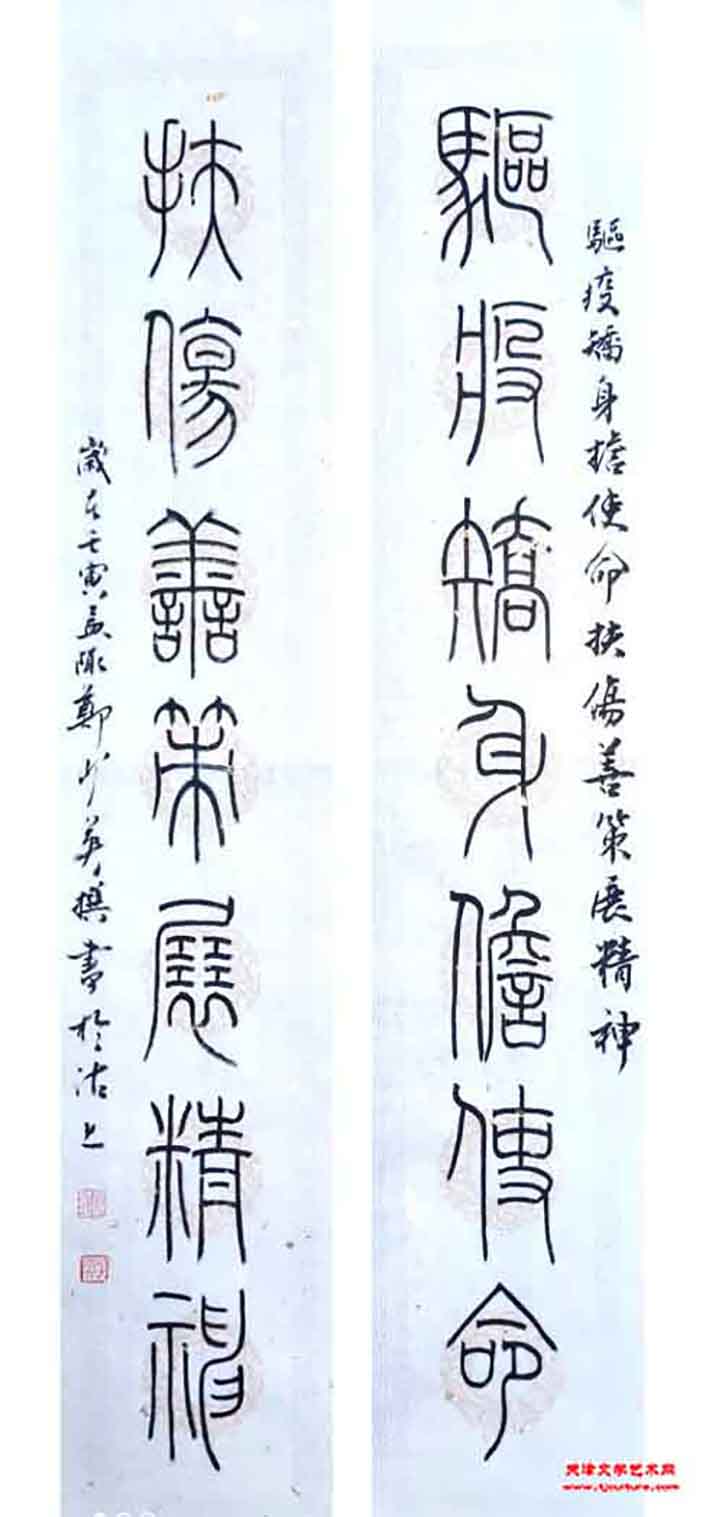 驅疫矯身擔使命扶傷善策展精神
驅疫矯身擔使命
扶傷善策展精神
歲在壬寅孟陬鄭少英撰書於沽上
天津文学艺术网